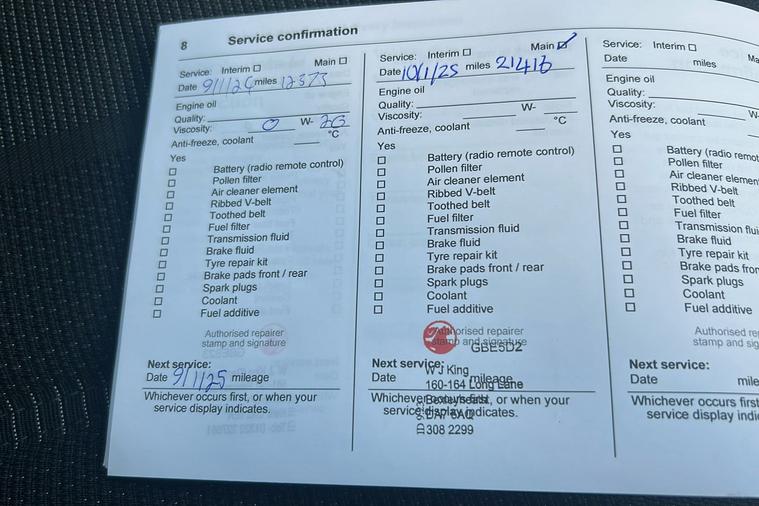 8 Service confirmation
Service: Interim Main
Date 9/1/24 miles 12373
Engine oil
Quality:
Viscosity: 0 W- 20
Anti-freeze, coolant °C
Yes
Battery (radio remote control)
Pollen filter
Air cleaner element
Ribbed V-belt
Toothed belt
Fuel filter
Transmission fluid
Brake fluid
Tyre repair kit
Brake pads front / rear
Spark plugs
Coolant
Fuel additive
Authorised repairer
stamp and signature
Next service:
Date 9/1/25 mileage
Whichever occurs first, or when your
service display indicates.
Service: Interim Main
Date 10/1/25 miles 21416
Engine oil
Quality:
Viscosity: W-
Anti-freeze, coolant °C
Yes
Battery (radio remote control)
Pollen filter
Air cleaner element
Ribbed V-belt
Toothed belt
Fuel filter
Transmission fluid
Brake fluid
Tyre repair kit
Brake pads front / rear
Spark plugs
Coolant
Fuel additive
Authorised repairer
stamp and signature
GBE5D2
Next service:
W J King
Date mileage
160-164 Long Lane
Whichever occurs first, or when your
Bexleyheath
service display indicates.
308 2299
Service: Interim Ma
Date miles
Engine oil
Quality:
Viscosity: W-
Anti-freeze, coolant
Yes
Battery (radio remot
Pollen filter
Air cleaner elemen
Ribbed V-belt
Toothed belt
Fuel filter
Transmission flui
Brake fluid
Tyre repair kit
Brake pads fron
Spark plugs
Coolant
Fuel additive
Authorised re
stamp and sig
Next service:
Date mile
Whichever occurs first, o
service display indi